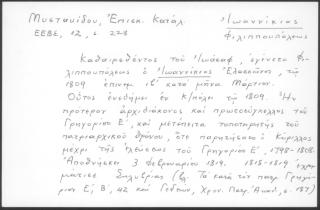 Μυστακίδου, Ἐπισκ. Κατάλ.
ΕΕΒΣ, 12, σ. 223
Ἰωαννίκιος
Φιλιππουπόλεως
Καθαιρεθέντος τοῦ Ἰωάσαφ, ἐγένετο Φι-
λιππουπόλεως ὁ Ἰωαννίκιος τῷ
1809 ἐπινεμ. ιβʹ κατὰ μῆνα Μάρτιον.
Οὗτος ἐνεδήμει ἐν Κ/πόλει τῷ 1809. Ἦν
πρότερον ἀρχιδιάκονος καὶ πρωτοσύγκελλος τοῦ
Γρηγορίου Εʹ, καὶ μετέπειτα τοποτηρητὴς τοῦ
πατριαρχικοῦ θρόνου, ὅτε παρῃτήσατο ὁ Κύριλλος
μέχρι τῆς ἐλεύσεως τοῦ Γρηγορίου Εʹ, 1798-1808.
Ἀπεθνήσκει 3 φεβρουαρίου 1819. 1818-1819 ἐχρη-
μάτισε Σηλυβρίας (βλ. Τὰ κατὰ τὸν πατρ. Γρηγό-
ριον Εʹ, Βʹ, 42 καὶ Γεδεών, Χρον. Πατρ. Ἀκαδ., σ. 187)